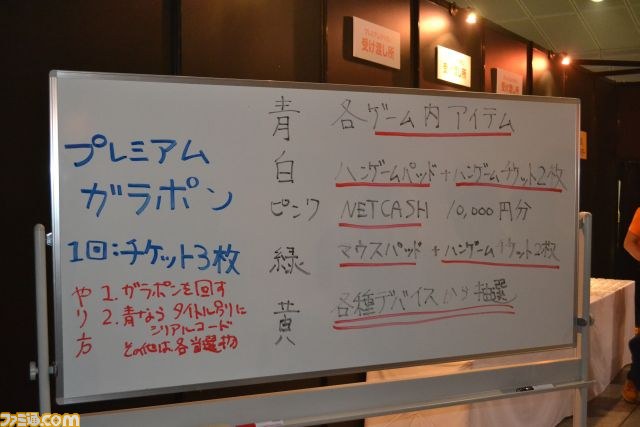 受け渡し所
プレミアム
ガラポン
1回:チケット3枚
やり方
1. ガラポンを回す
2. 青ならタイトル別に
シリアルコード
その他は各当選物
青 各ゲーム内アイテム
白 ハンゲームパッド+ハンゲームチケット2枚
ピンク NETCASH 10,000円分
緑 マウスパッド+ハンゲームチケット2枚
黄 各種デバイス 抽選
ファミ通.com